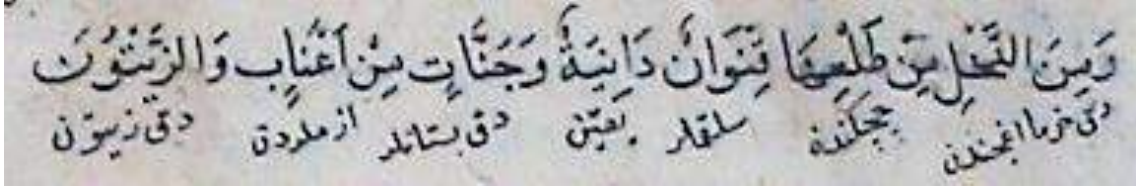 وَمِنَ النَّخْلِ مِنْ طَلْعِهَا قِنْوَانٌ دَانِيَةٌ وَجَنَّاتٍ مِنْ أَعْنَابٍ وَالزَّيْتُونَ
دقی خرما اغجندن چچكندن سلقملر یقین دقی بستانلر ازملردن دقی زیتون